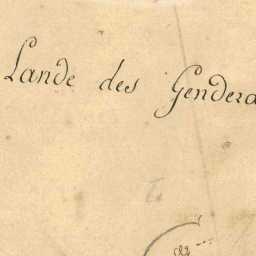 Lande des Gendera